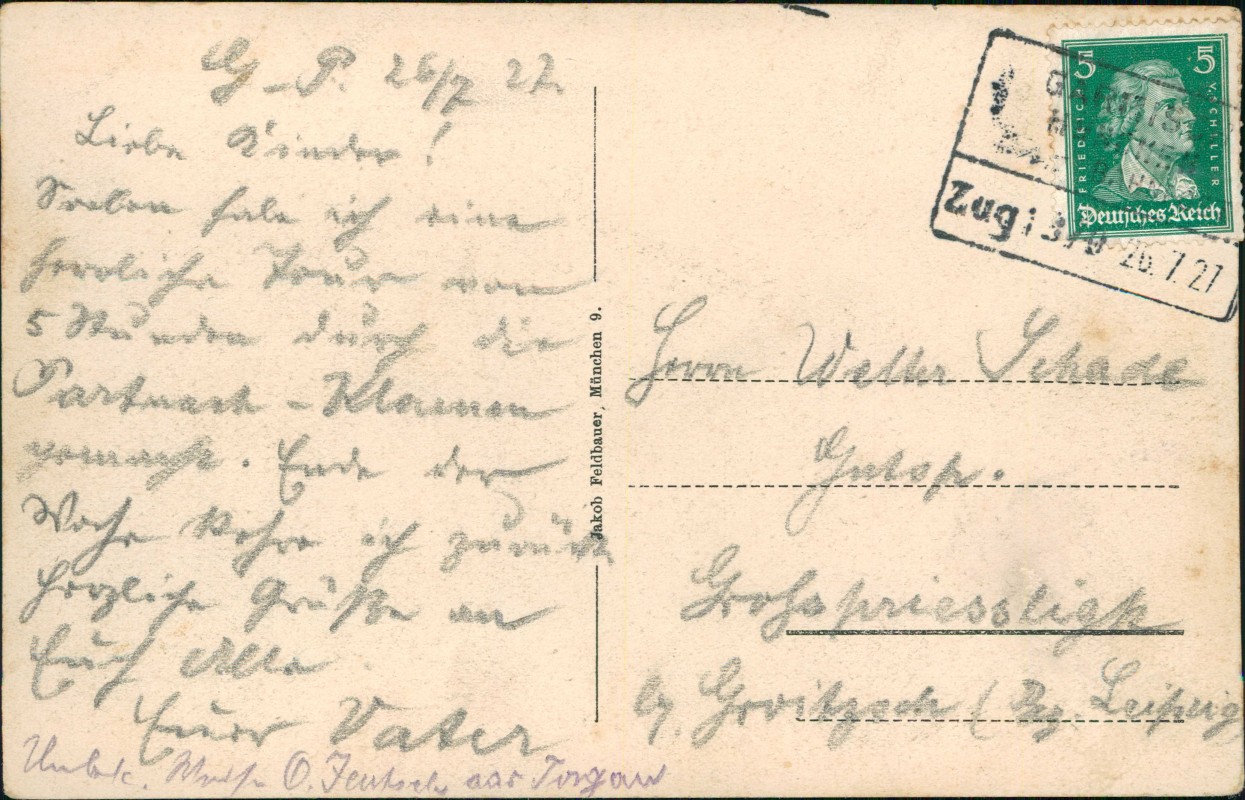 G-P. 26/7 27.
Liebe Kinder!
Soeben habe ich eine
herrliche Tour von
5 Stunden durch die
Partnach-Klamm
gemacht. Ende der
Woche kehre ich zurück
herzliche Grüße an
Euch Alle
Euer Vater
O. Jentzsch aus Torgau
Jakob Feldbauer, München 9.
5 5
FRIEDRICH V. SCHILLER
Deutsches Reich
Zug 26.7.27
Herrn Walter Schade
Gutsp.
Grosspriessligk
b/ Groitzsch (Bz. Leipzig